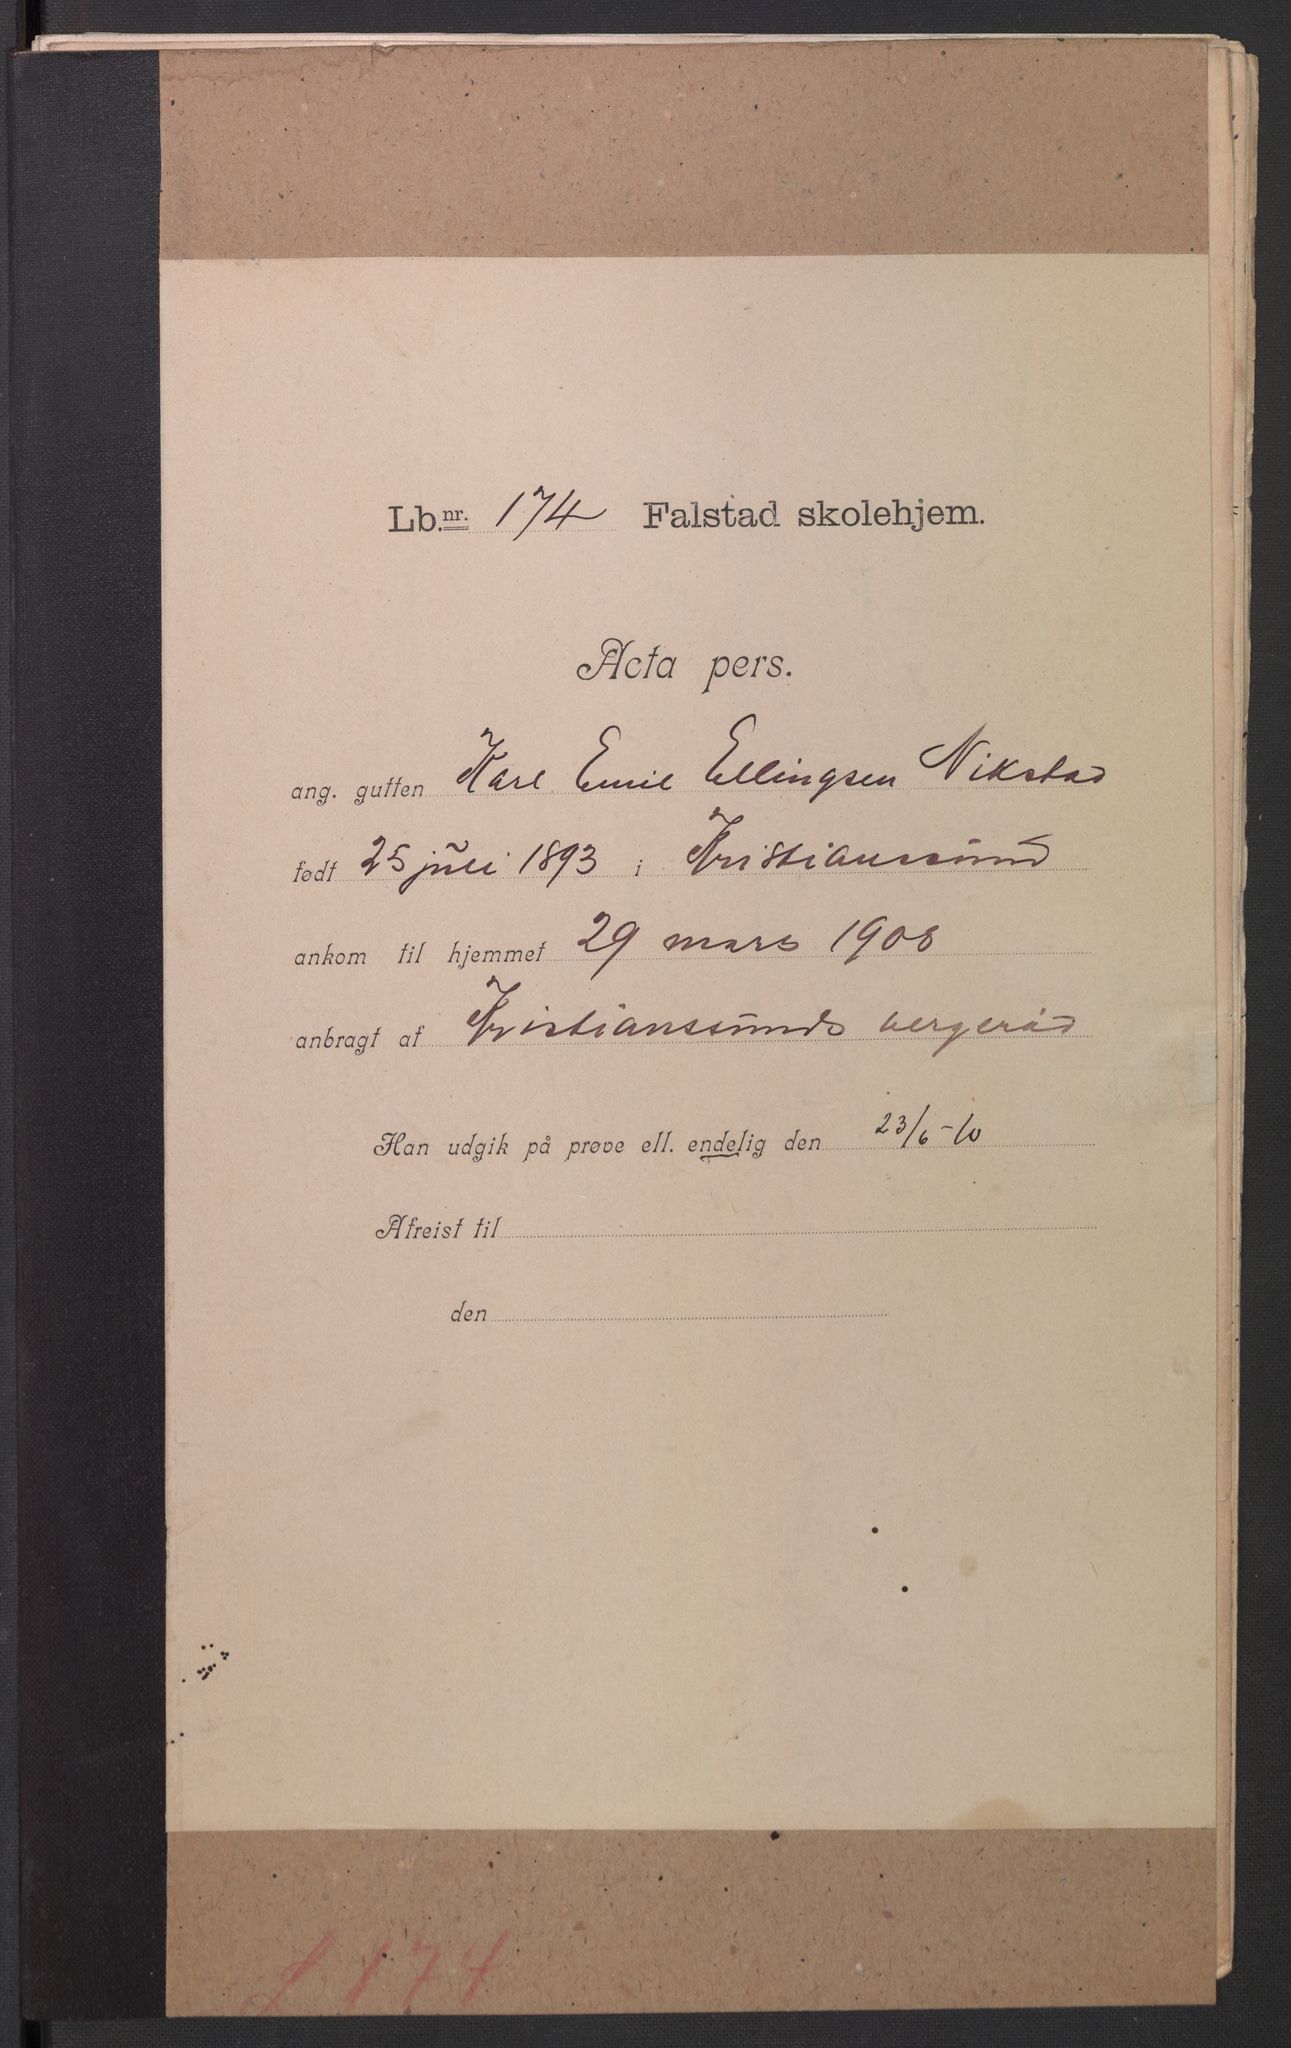 Lb.nr. 174 Falstad skolehjem.
Acta pers.
ang. gutten Karl Emil Ellingsen Nikstad
født 25 juli 1893 i Kristianssund
ankom til hjemmet 29 mars 1908
anbragt af Kristianssunds vergeråd
Han udgik på prøve ell. endelig den 23/6-10
Afreist til
den
L 174